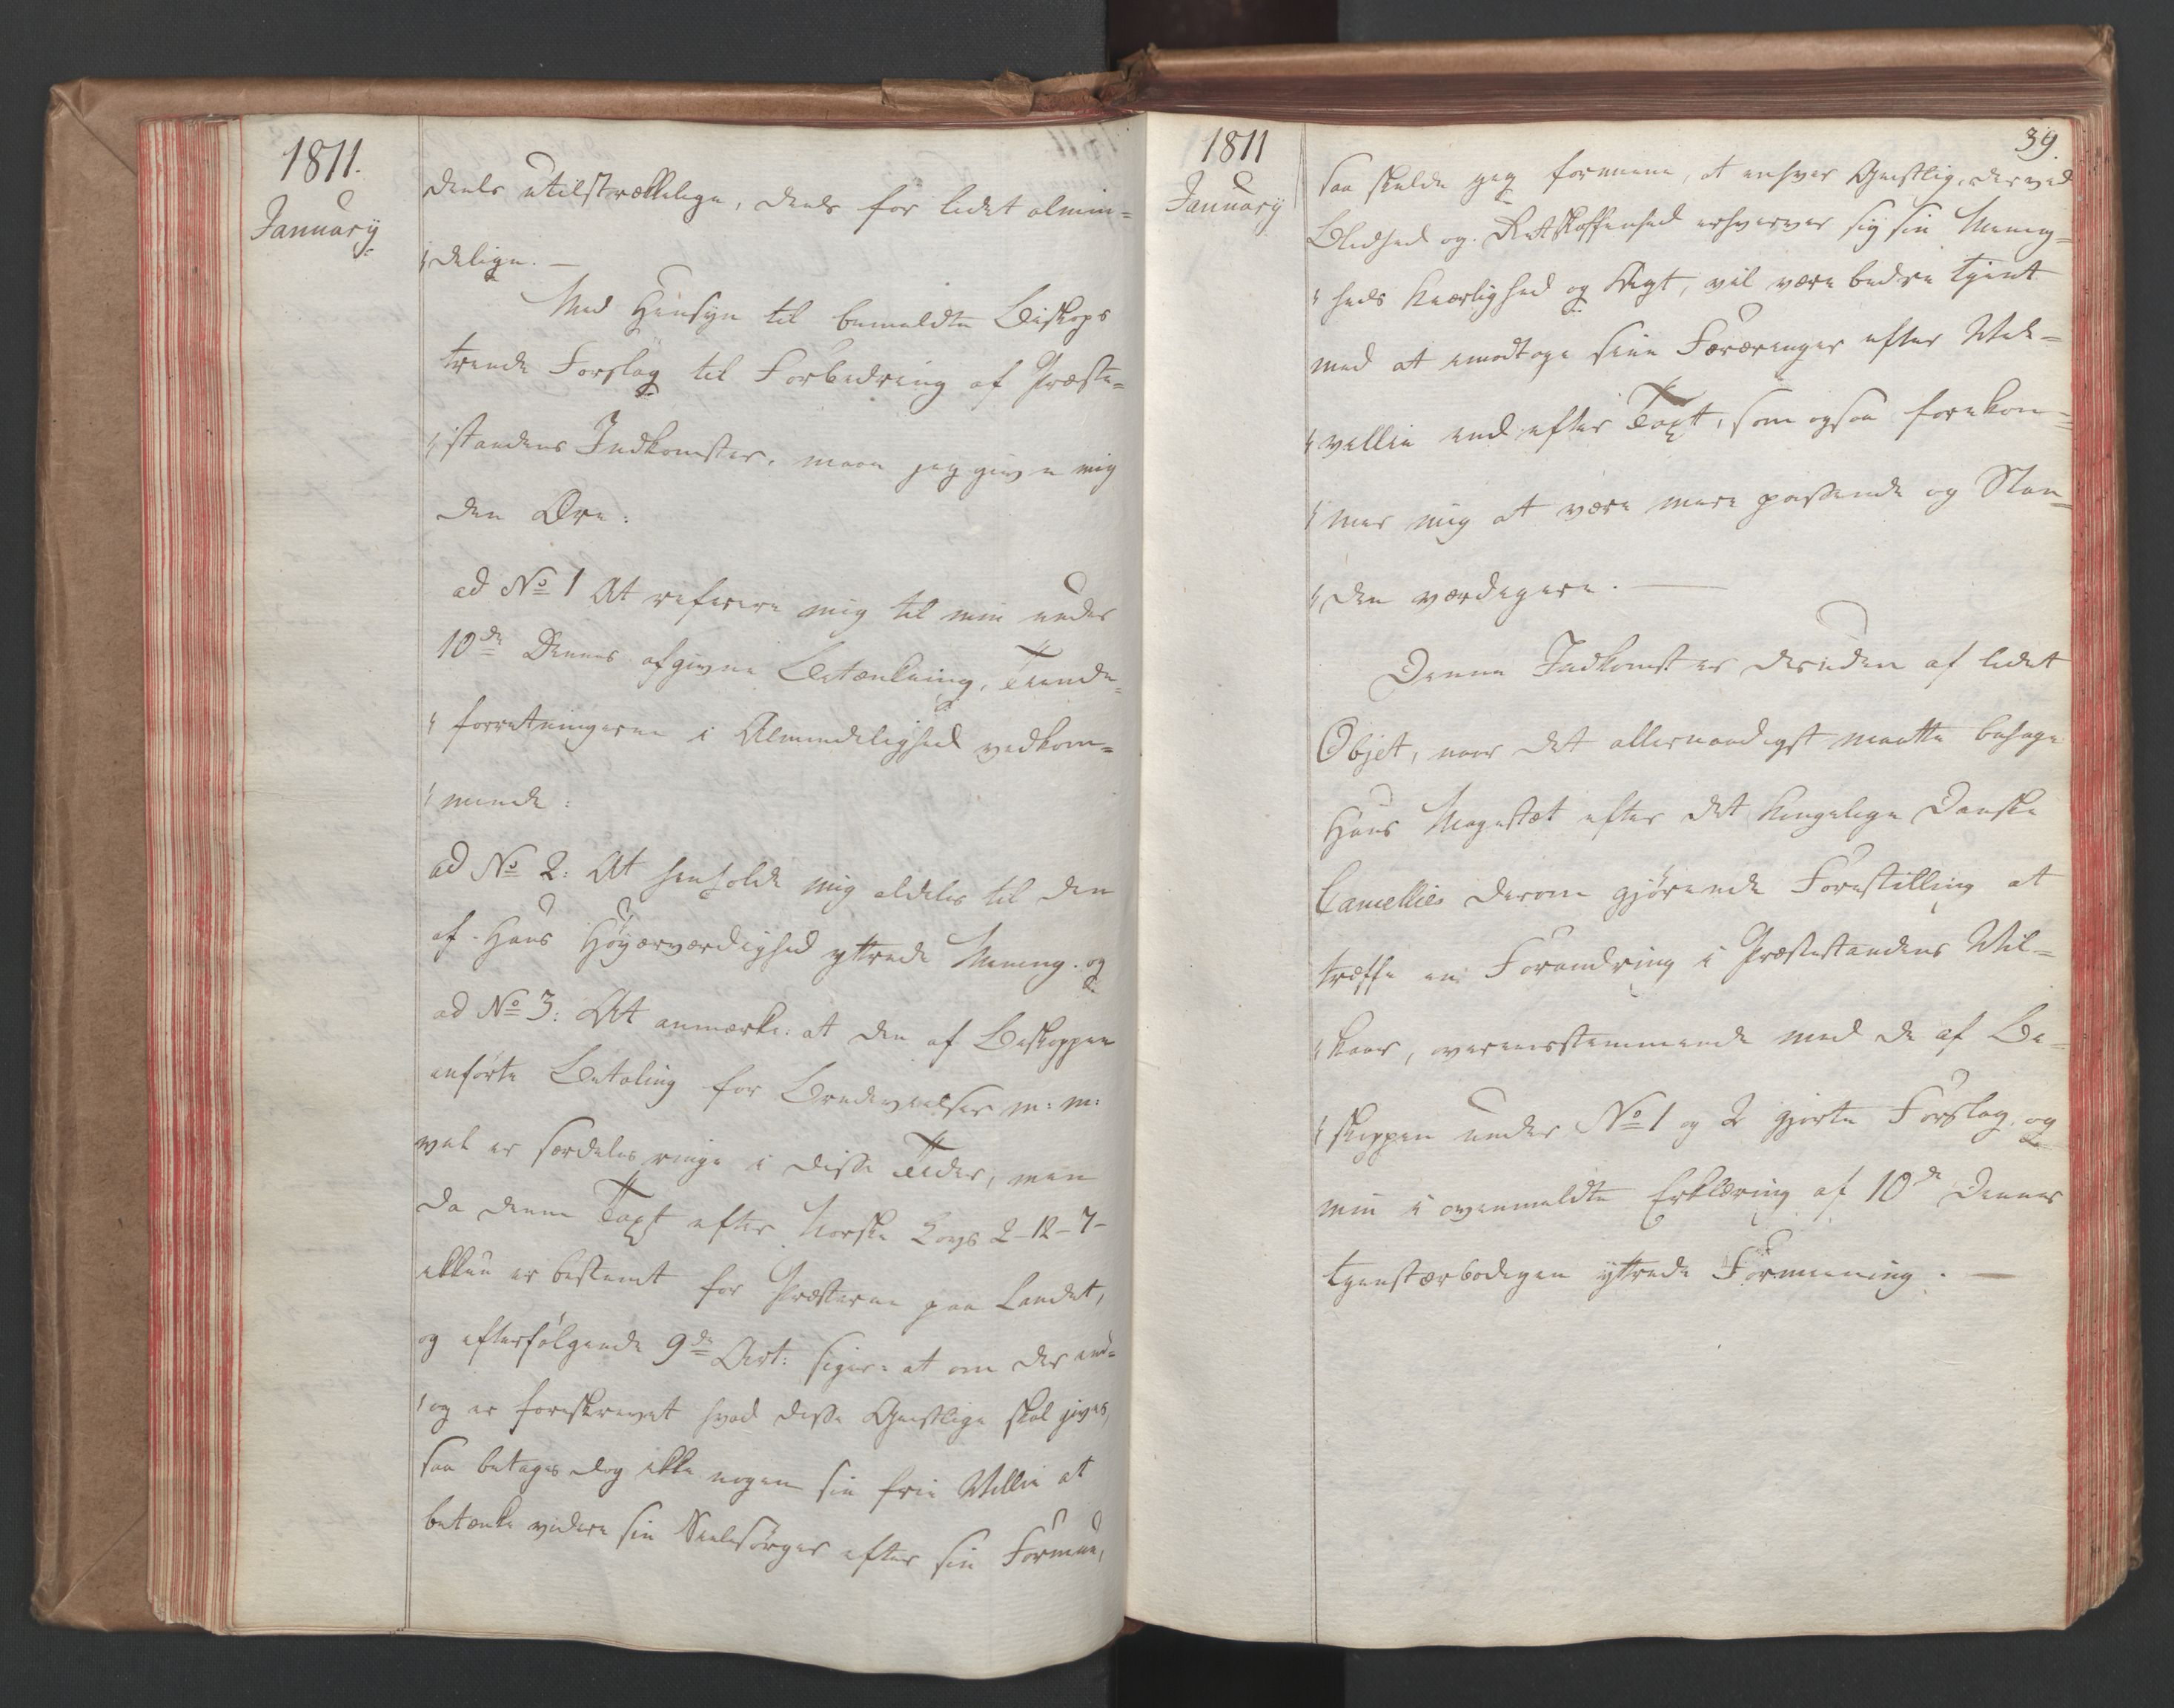 1811.
January
deels utilstrækkelige, deels for lidet almin=
delige. —
Med Hensyn til bemeldte Biskops
trende Forslag til Forbedring af Præste=
standens Indkomster, maa jeg give mig
den Ære:
ad No 1 At referere mig til min under
10de Dennes afgivne Betænkning, Tiende=
forretningerne i Almindelighed vedkom=
mende:
ad No 2: At henholde mig aldeles til den
af Hans Høyærværdighed yttrede Mening. og
ad No 3: At anmærke: at den af Biskoppen
anførte Betaling for Brudevielser m: m:
vel er særdeles ringe i disse Tider, men
da denne Taxt efter Norske Lovs 2-12-7-
ikkun er bestemt for Præsterne paa Landet,
og efterfølgende 9de Art: siger: at om der end=
og er foreskrevet hvad disse Geistlige skal gives,
saa betages dog ikke nogen sin frie Villie at
betænke videre sin Siælesørger efter sin Formue,
1811
January
39.
saa skulde jeg formene, at enhver Geistlig, der ved
Blidhed og Retskaffenhed erhverver sig sin Menig=
heds Kærlighed og Agt, vil være bedre tient
med at imodtage sine Foræringer efter Vel=
villie end efter Taxt, som ogsaa forekom=
mer mig at være mere passende og Stan=
den værdigere. —
Denne Indkomst er desuden af lidet
Objet, naar det allernaadigst maatte behage
Hans Majestæt efter det Kongelige Danske
Cancellies derom gjørende Forestilling at
træffe en Forandring i Præstestandens Vil=
kaar, overeensstemmende med de af Bi=
skoppen under No 1 og 2 gjorte Forslag, og
min i ovenmeldte Erklæring af 10de Dennes
tjenstærbødigen yttrede Formening. —